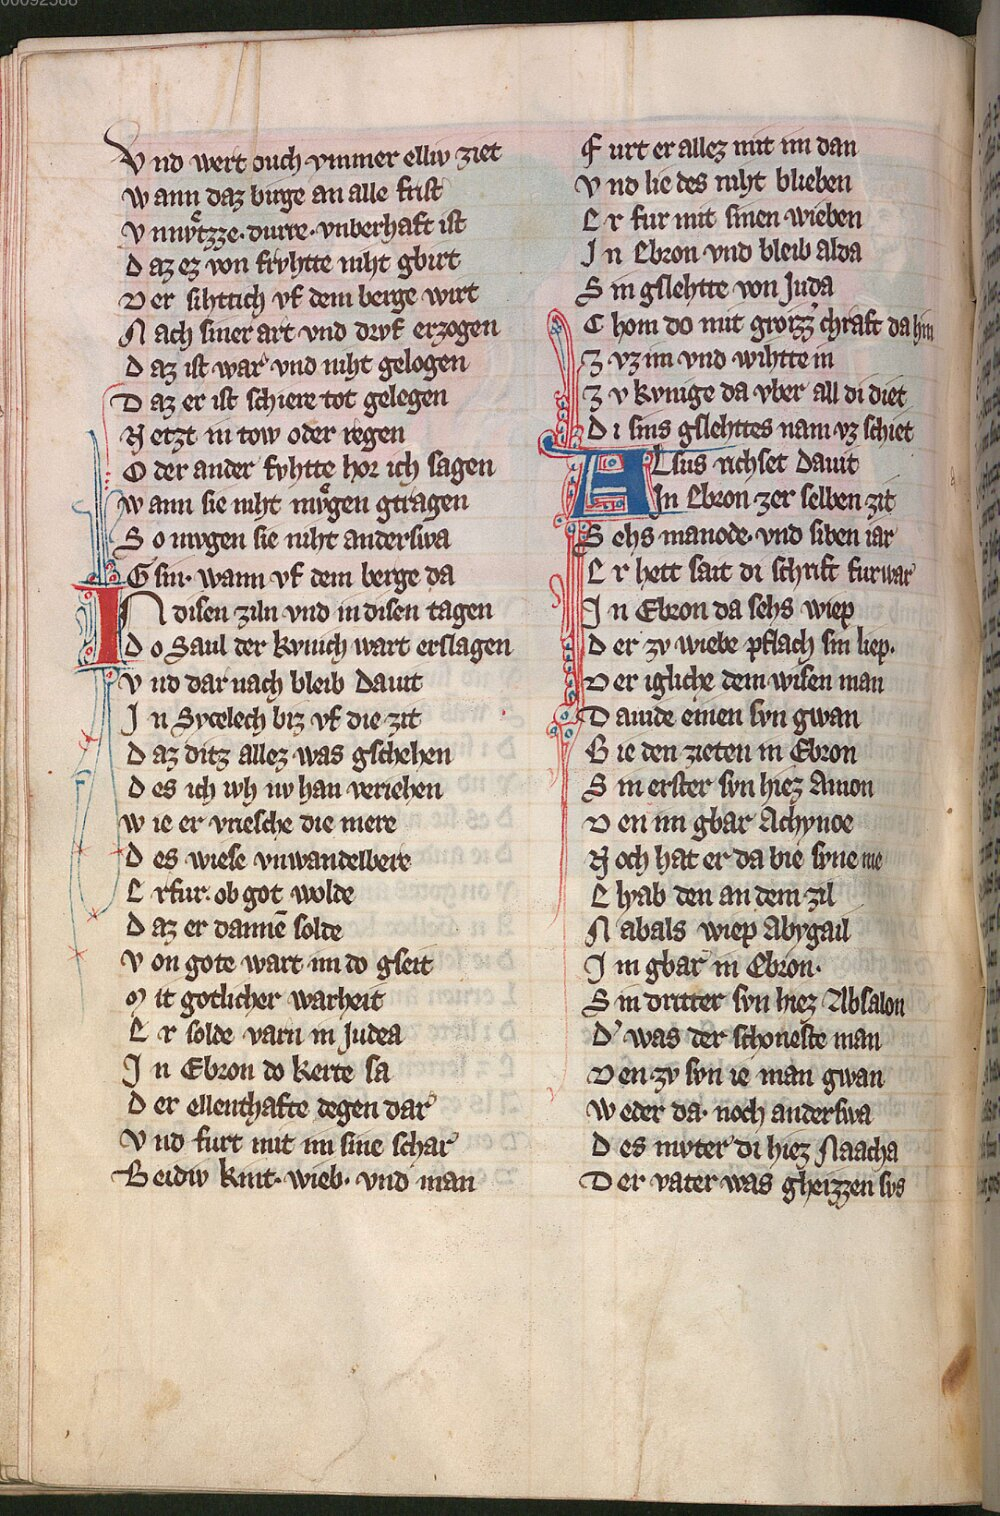 00092588
Vnd wert ouch ymmer elliv ziet
Wann daz birge an alle frist
Vnnvͤtzze. durre. vnberhaft ist
Daz ez von frvhtte niht gbirt
Der sihttich vf dem berge wirt
Nach siner art vnd drvf erzogen
Daz ist war vnd niht gelogen
Daz er ist schiere tot gelegen
Netzt in tow oder regen
Oder ander fvhtte hor ich sagen
Wann sie niht mvͤgen gtragen
So mvgen sie niht anderswa
Gsin. wann vf dem berge da
IN disen ziln vnd in disen tagen
Do Saul der kvnich wart erslagen
Vnd dar nach bleib Dauit
In Sycelech biz vf die zit
Daz ditz allez was gschehen
Des ich wh iw han veriehen
Wie er vriesche die mere
Des wiese vnwandelbere
Er fur. ob got wolde
Daz er dannē solde
Von gote wart im do gseit
Mit gotlicher warheit
Er solde varn in Judea
In Ebron do kerte sa
Der ellenthafte degen dar
Vnd furt mit im sine schar
Beidiv kint. wieb. vnd man
Furt er allez mit im dan
Vnd lie des niht blieben
Er fur mit sinen wieben
In Ebron vnd bleib alda
Sin gslehtte von Juda
Chom do mit grozz chraft da hin
Zvz im vnd wihtte in
Zv kvnige da vber all di diet
Di sins gslehttes nam vz schiet
ALsus richset Dauit
In Ebron zer selben zit
Sehs manode. vnd siben iar
Er hett sait di schrift furwar
In Ebron da sehs wiep
Der zv wiebe pflach sin liep.
Der igliche dem wisen man
Dauide einen svn gwan
Bie den zieten in Ebron
Sin erster svn hiez Amon
Den im gbar Achynoe
Noch hat er da bie svne me
Elyab den an dem zil
Nabals wiep Abygail
Im gbar in Ebron.
Sin dritter svn hiez Absalon
D' was der schoneste man
Den zv svn ie man gwan
Weder da. noch anderswa
Des mvter di hiez Naacha
Der vater was gheizzen svs